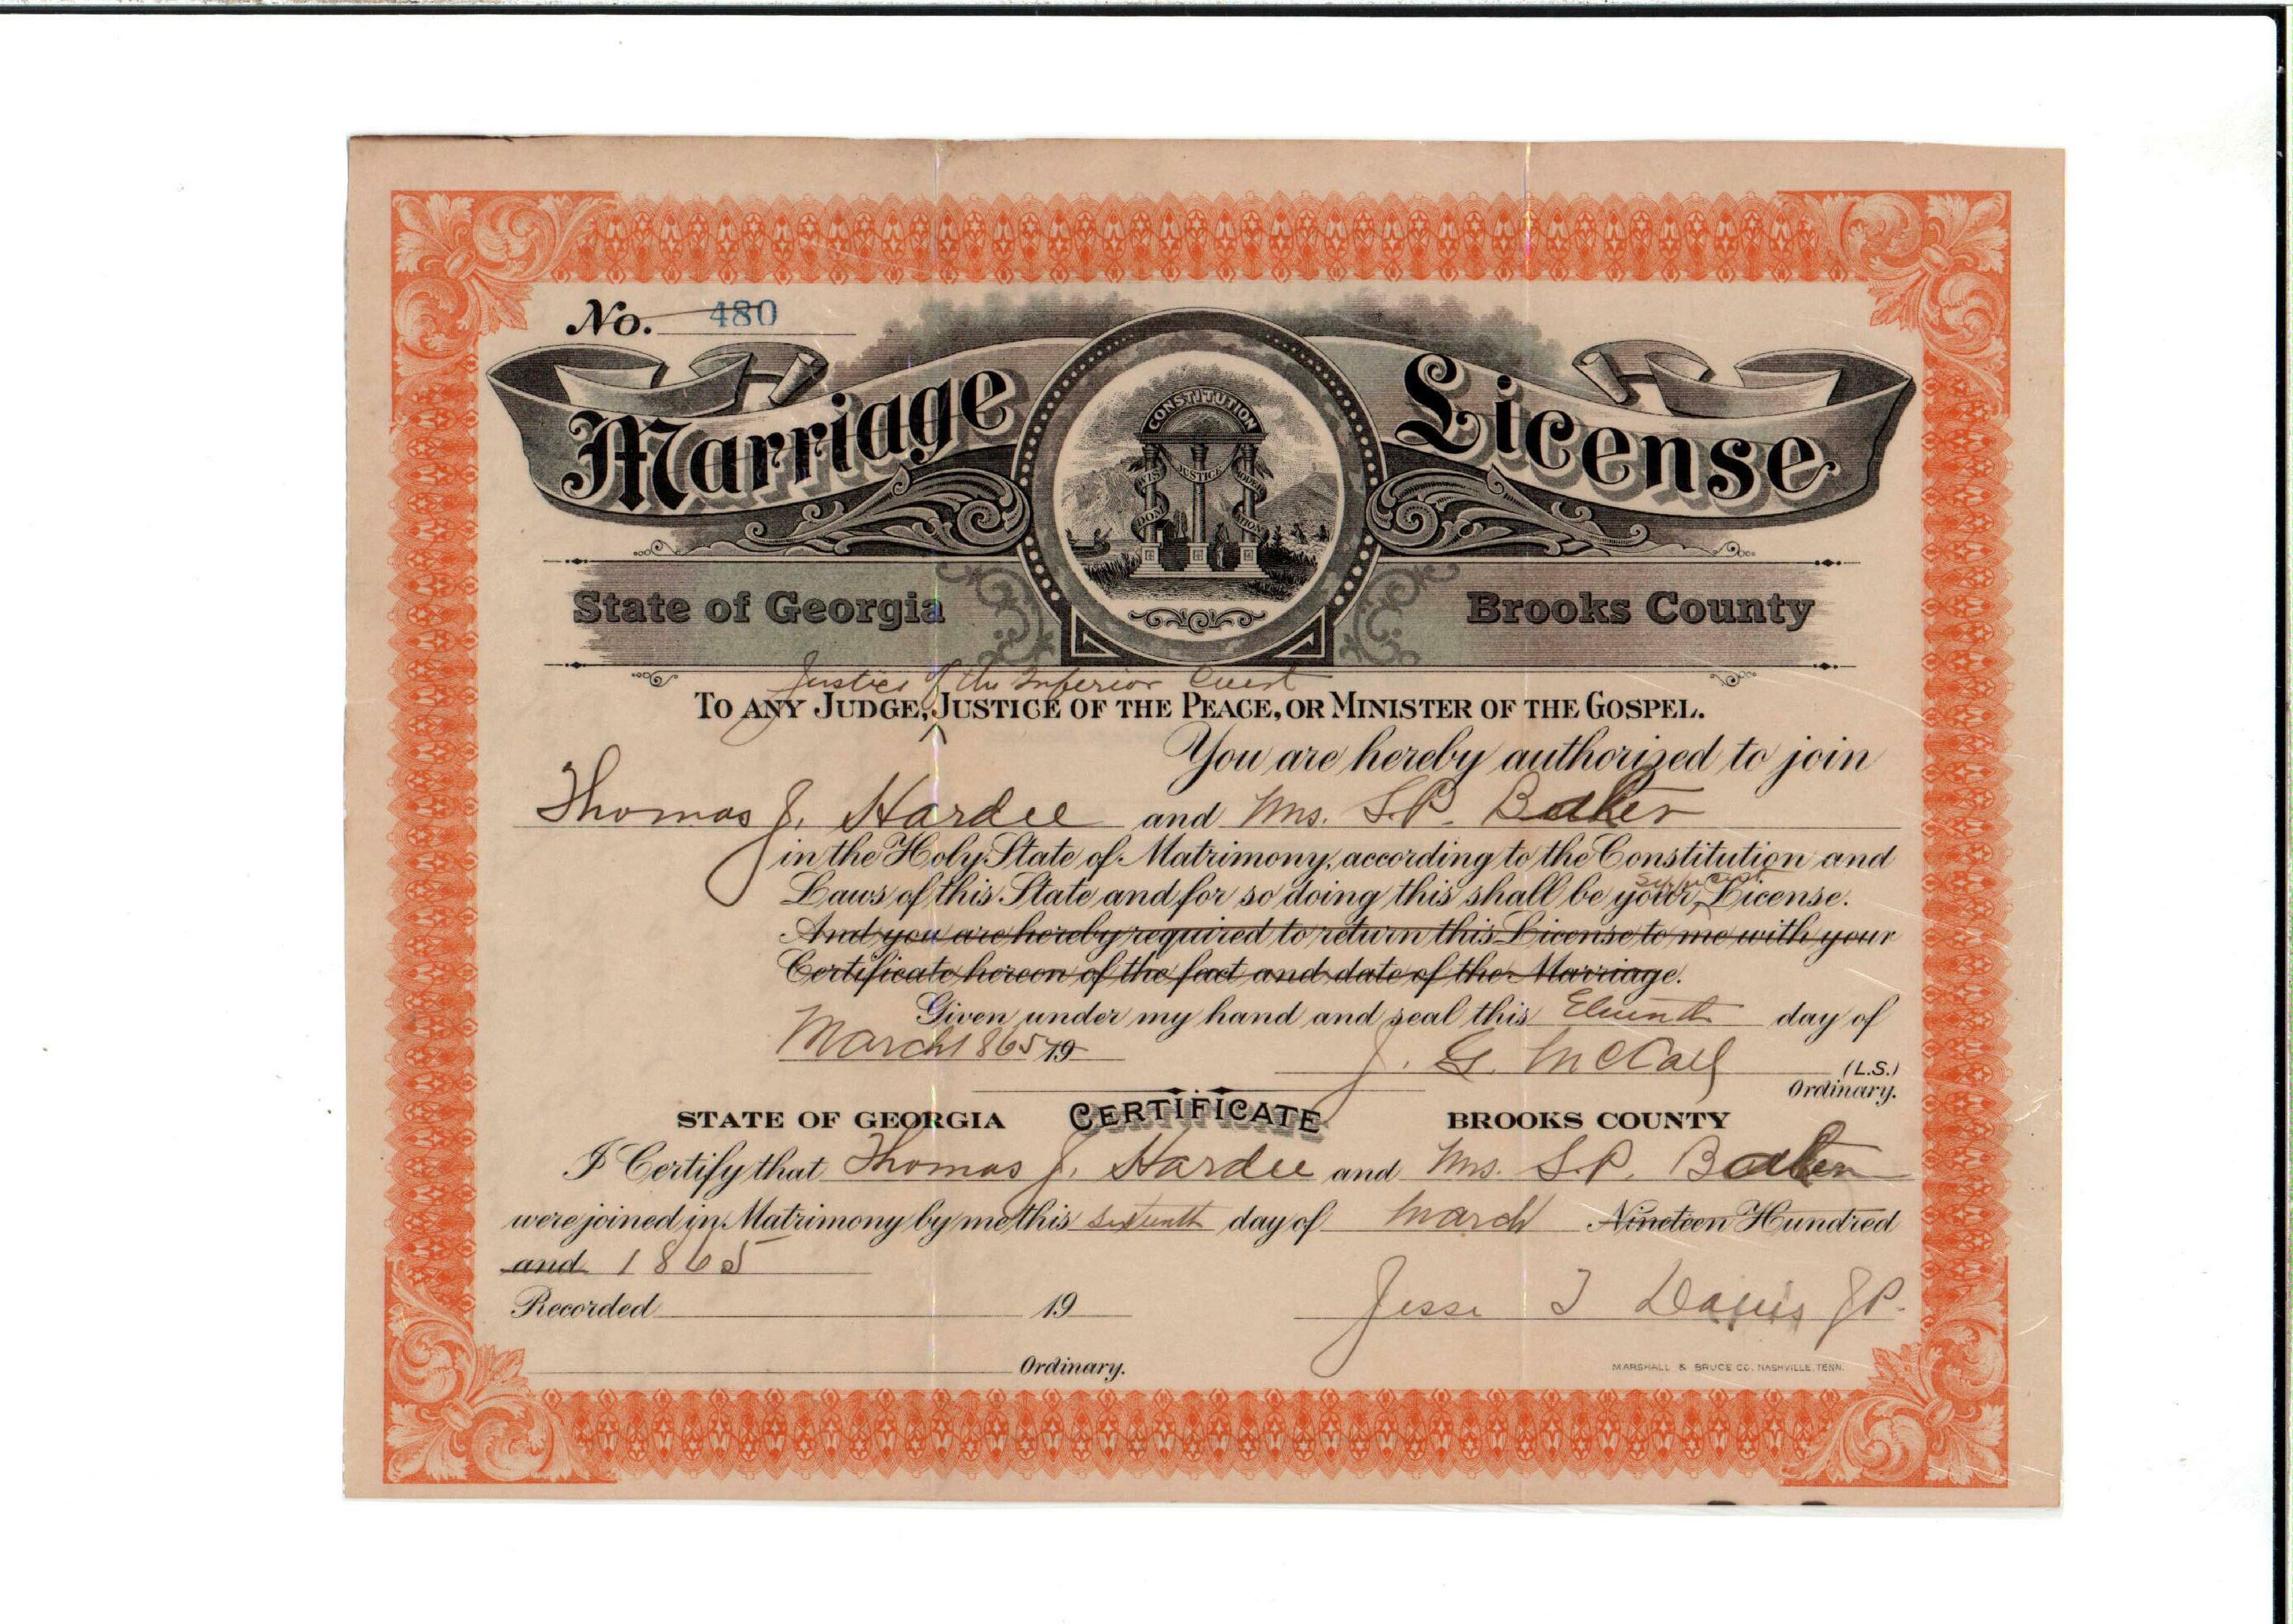 No. 480
Marriage License
CONSTITUTION
WISDOM JUSTICE MODERATION
State of Georgia Brooks County
Justice of the Inferior Court
TO ANY JUDGE, JUSTICE OF THE PEACE, OR MINISTER OF THE GOSPEL.
You are hereby authorized to join
Thomas J. Hardee and Mrs. S.P. Baker
in the Holy State of Matrimony, according to the Constitution and
Laws of this State and for so doing this shall be your License.
And you are hereby required to return this License to me with your
Certificate hereon of the fact and date of the Marriage.
Given under my hand and seal this Eleventh day of
March 1865 19
J. G. McCall (L.S.)
Ordinary.
STATE OF GEORGIA CERTIFICATE BROOKS COUNTY
I Certify that Thomas J. Hardee and Mrs. S.P. Baker
were joined in Matrimony by me this sixteenth day of March Nineteen Hundred
and 1865
Recorded 19
Jesse T Davis JP.
Ordinary.
MARSHALL & BRUCE CO. NASHVILLE, TENN.